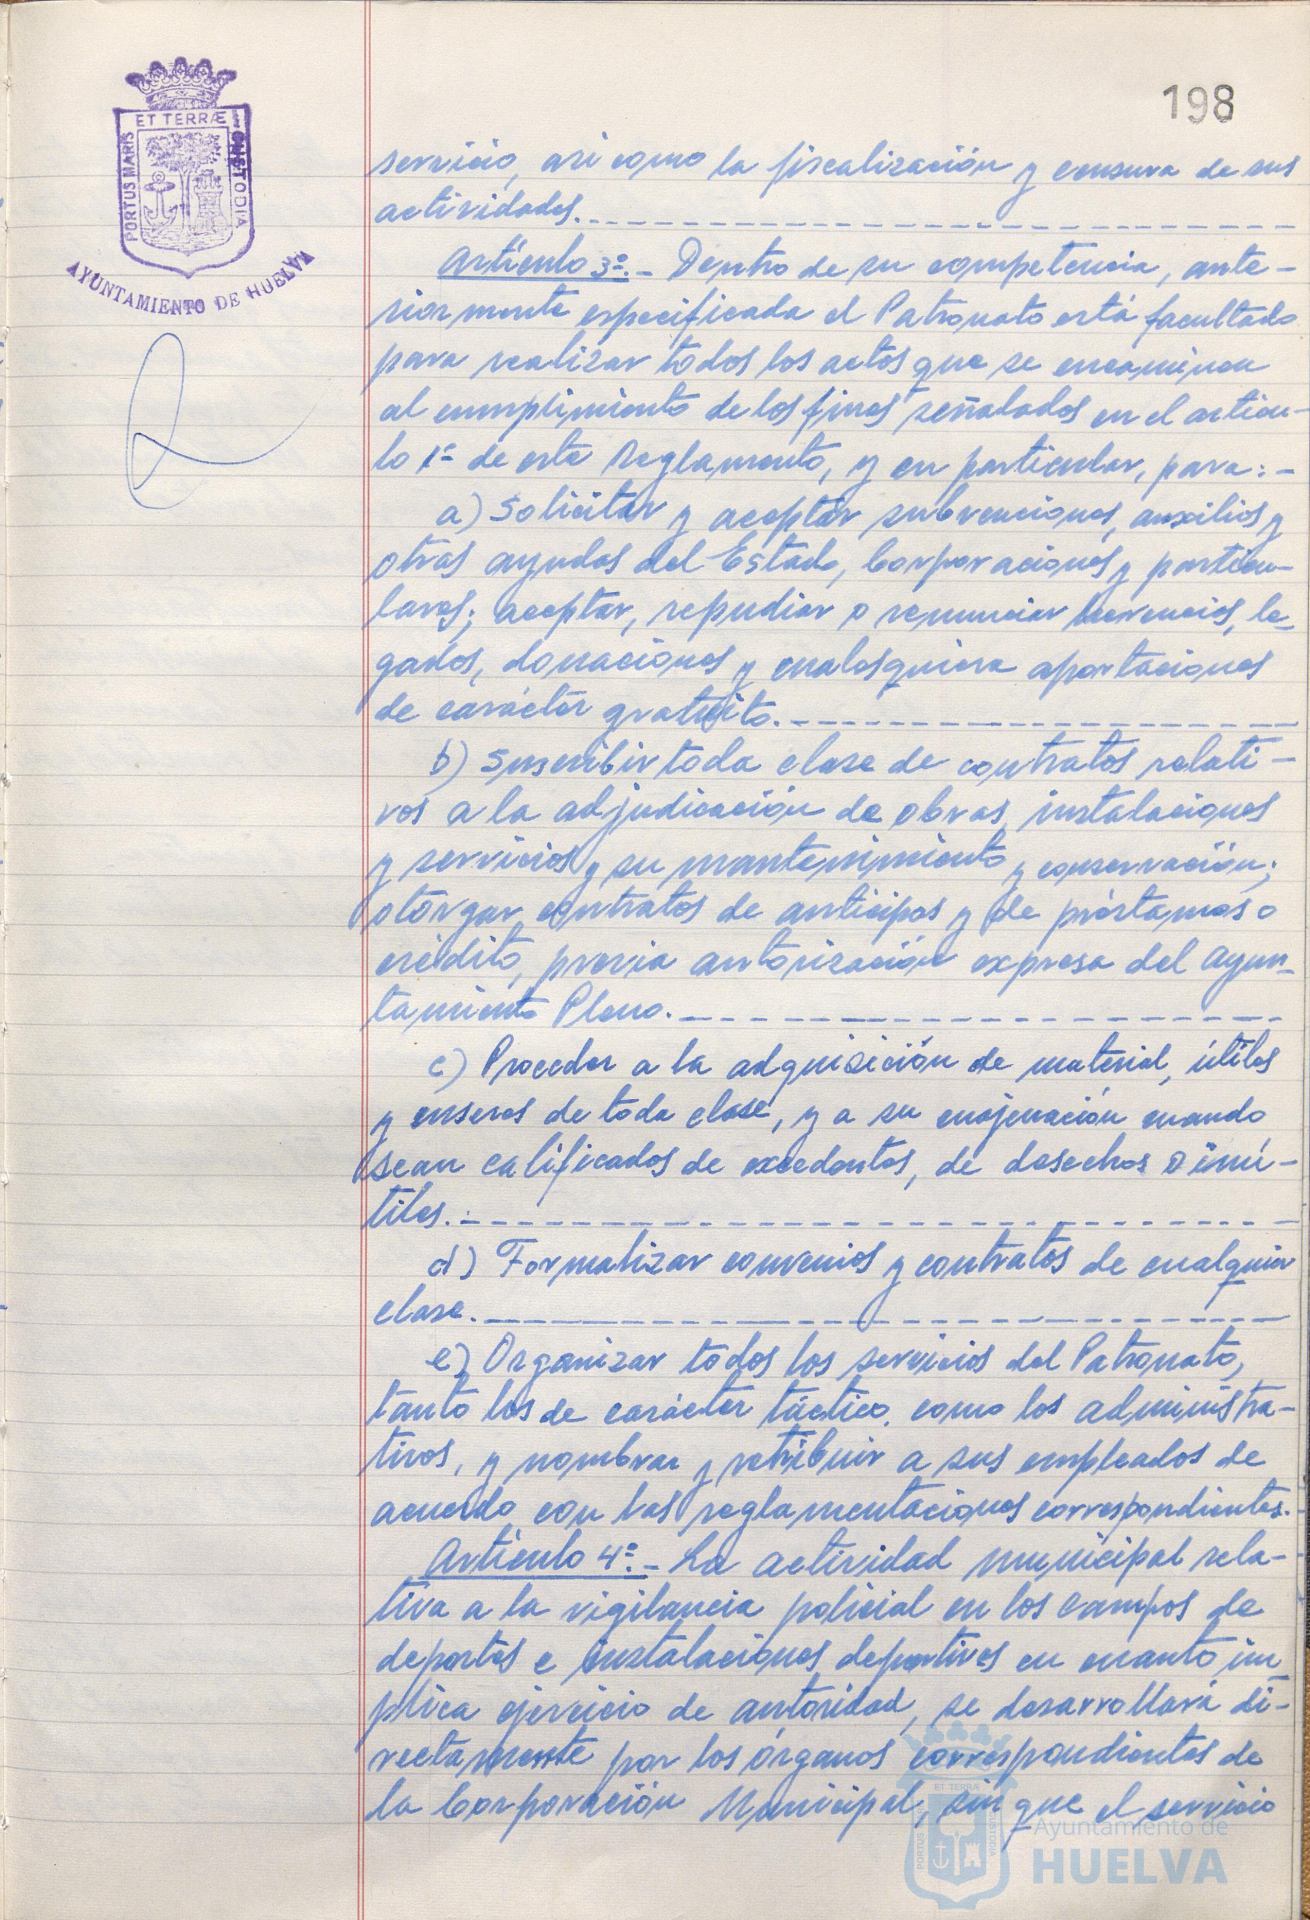 198
ET TERRÆ
PORTUS MARIS
CUSTODIA
AYUNTAMIENTO DE HUELVA
servicio, asi como la fiscalización y censura de sus
actividades.
Artículo 3º.- Dentro de su competencia, ante-
riormente especificada el Patronato está facultado
para realizar todos los actos que se encaminen
al cumplimiento de los fines señalados en el artícu-
lo 1º de este Reglamento, y en particular, para:-
a) Solicitar y aceptar subvenciones, auxilios y
otras ayudas del Estado, Corporaciones y particu-
lares; aceptar, repudiar o renunciar herencias, le-
gados, donaciones y cualesquiera aportaciones
de carácter gratuito.
b) Suscribir toda clase de contratos relati-
vos a la adjudicación de obras, instalaciones
y servicios y su mantenimiento y conservación;
otorgar contratos de anticipos y de préstamos o
crédito, previa autorización expresa del Ayun-
tamiento Pleno.
c) Proceder a la adquisición de material, útiles
y enseres de toda clase, y a su enajenación cuando
sean calificados de excedentes, de desechos o inú-
tiles.
d) Formalizar convenios y contratos de cualquier
clase.
e) Organizar todos los servicios del Patronato,
tanto los de carácter táctico, como los administra-
tivos, y nombrar y retribuir a sus empleados de
acuerdo con las reglamentaciones correspondientes.
Artículo 4º.- La actividad municipal rela-
tiva a la vigilancia policial en los campos de
deportes e instalaciones deportivas en cuanto im
plica ejercicio de autoridad, se desarrollará di-
rectamente por los órganos correspondientes de
la Corporación Municipal, sin que el servicio
Ayuntamiento de
HUELVA